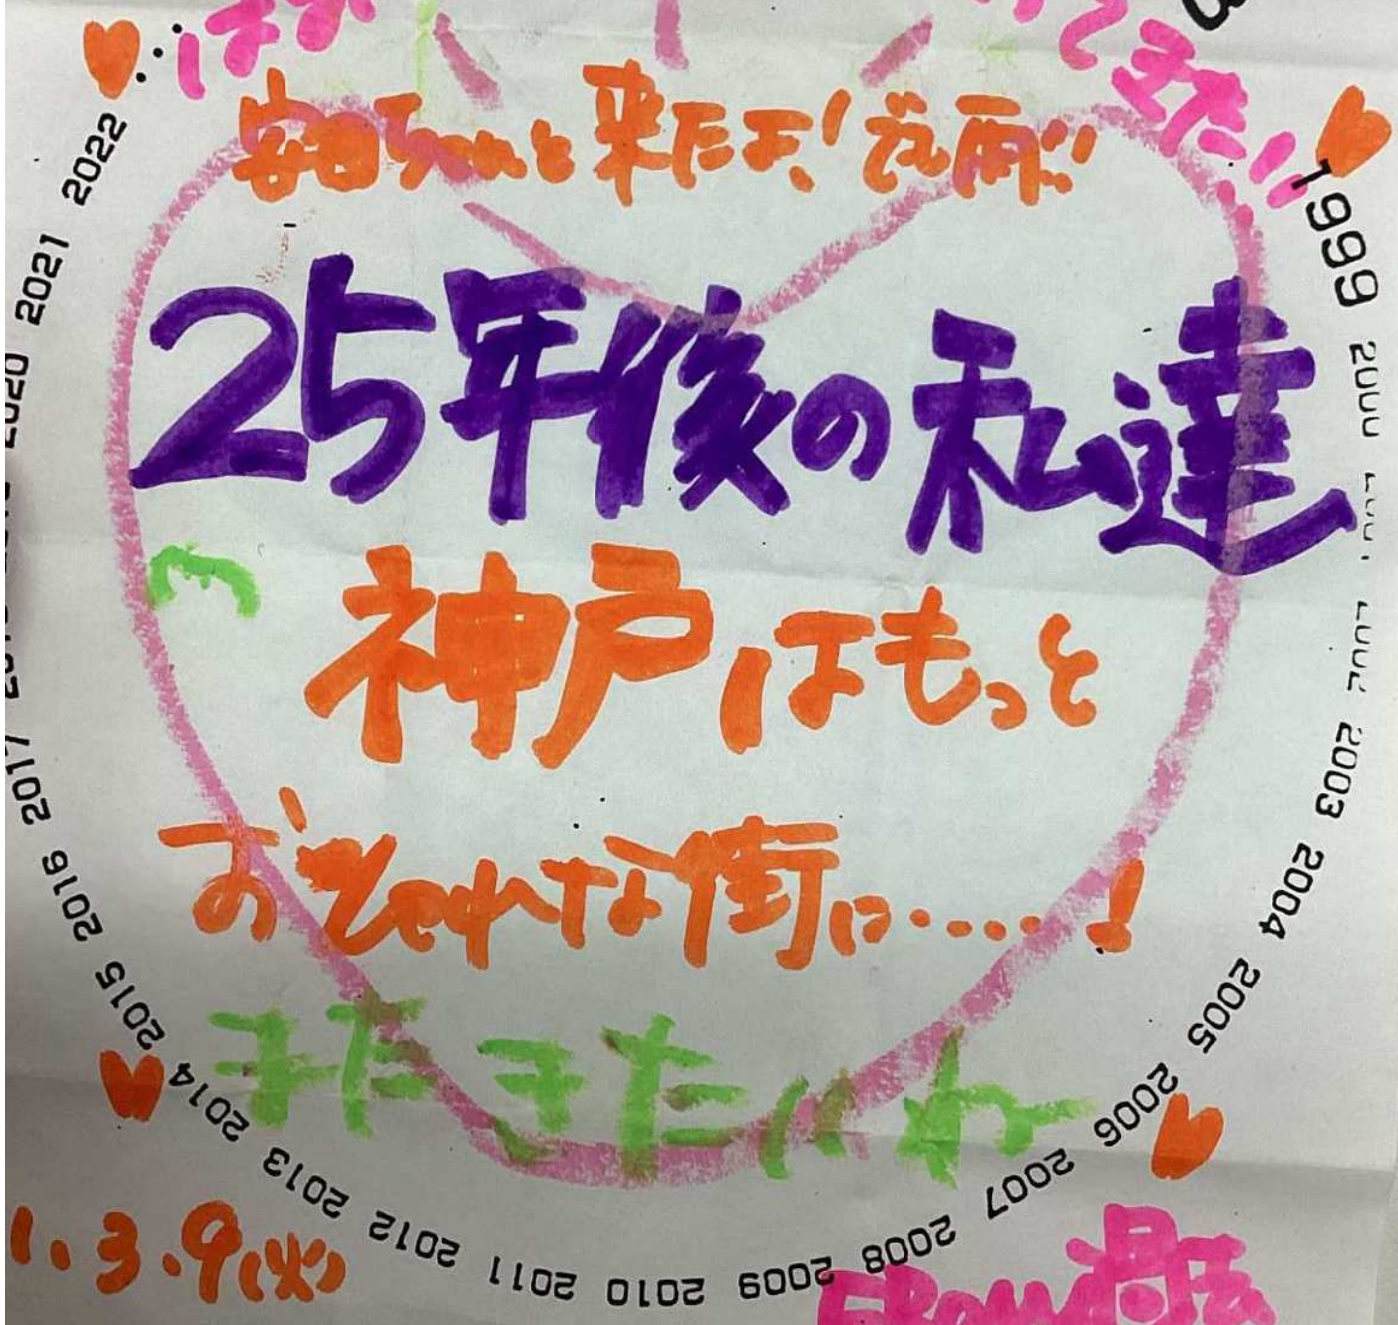 来たよ!
25年後の私達
神戸はもっと
おしゃれな街に・・・・・!
またきたいね
1.3.9(火)
FROM
1999 2000 2001 2002 2003 2004 2005 2006 2007 2008 2009 2010 2011 2012 2013 2014 2015 2016 2017
2020 2021 2022